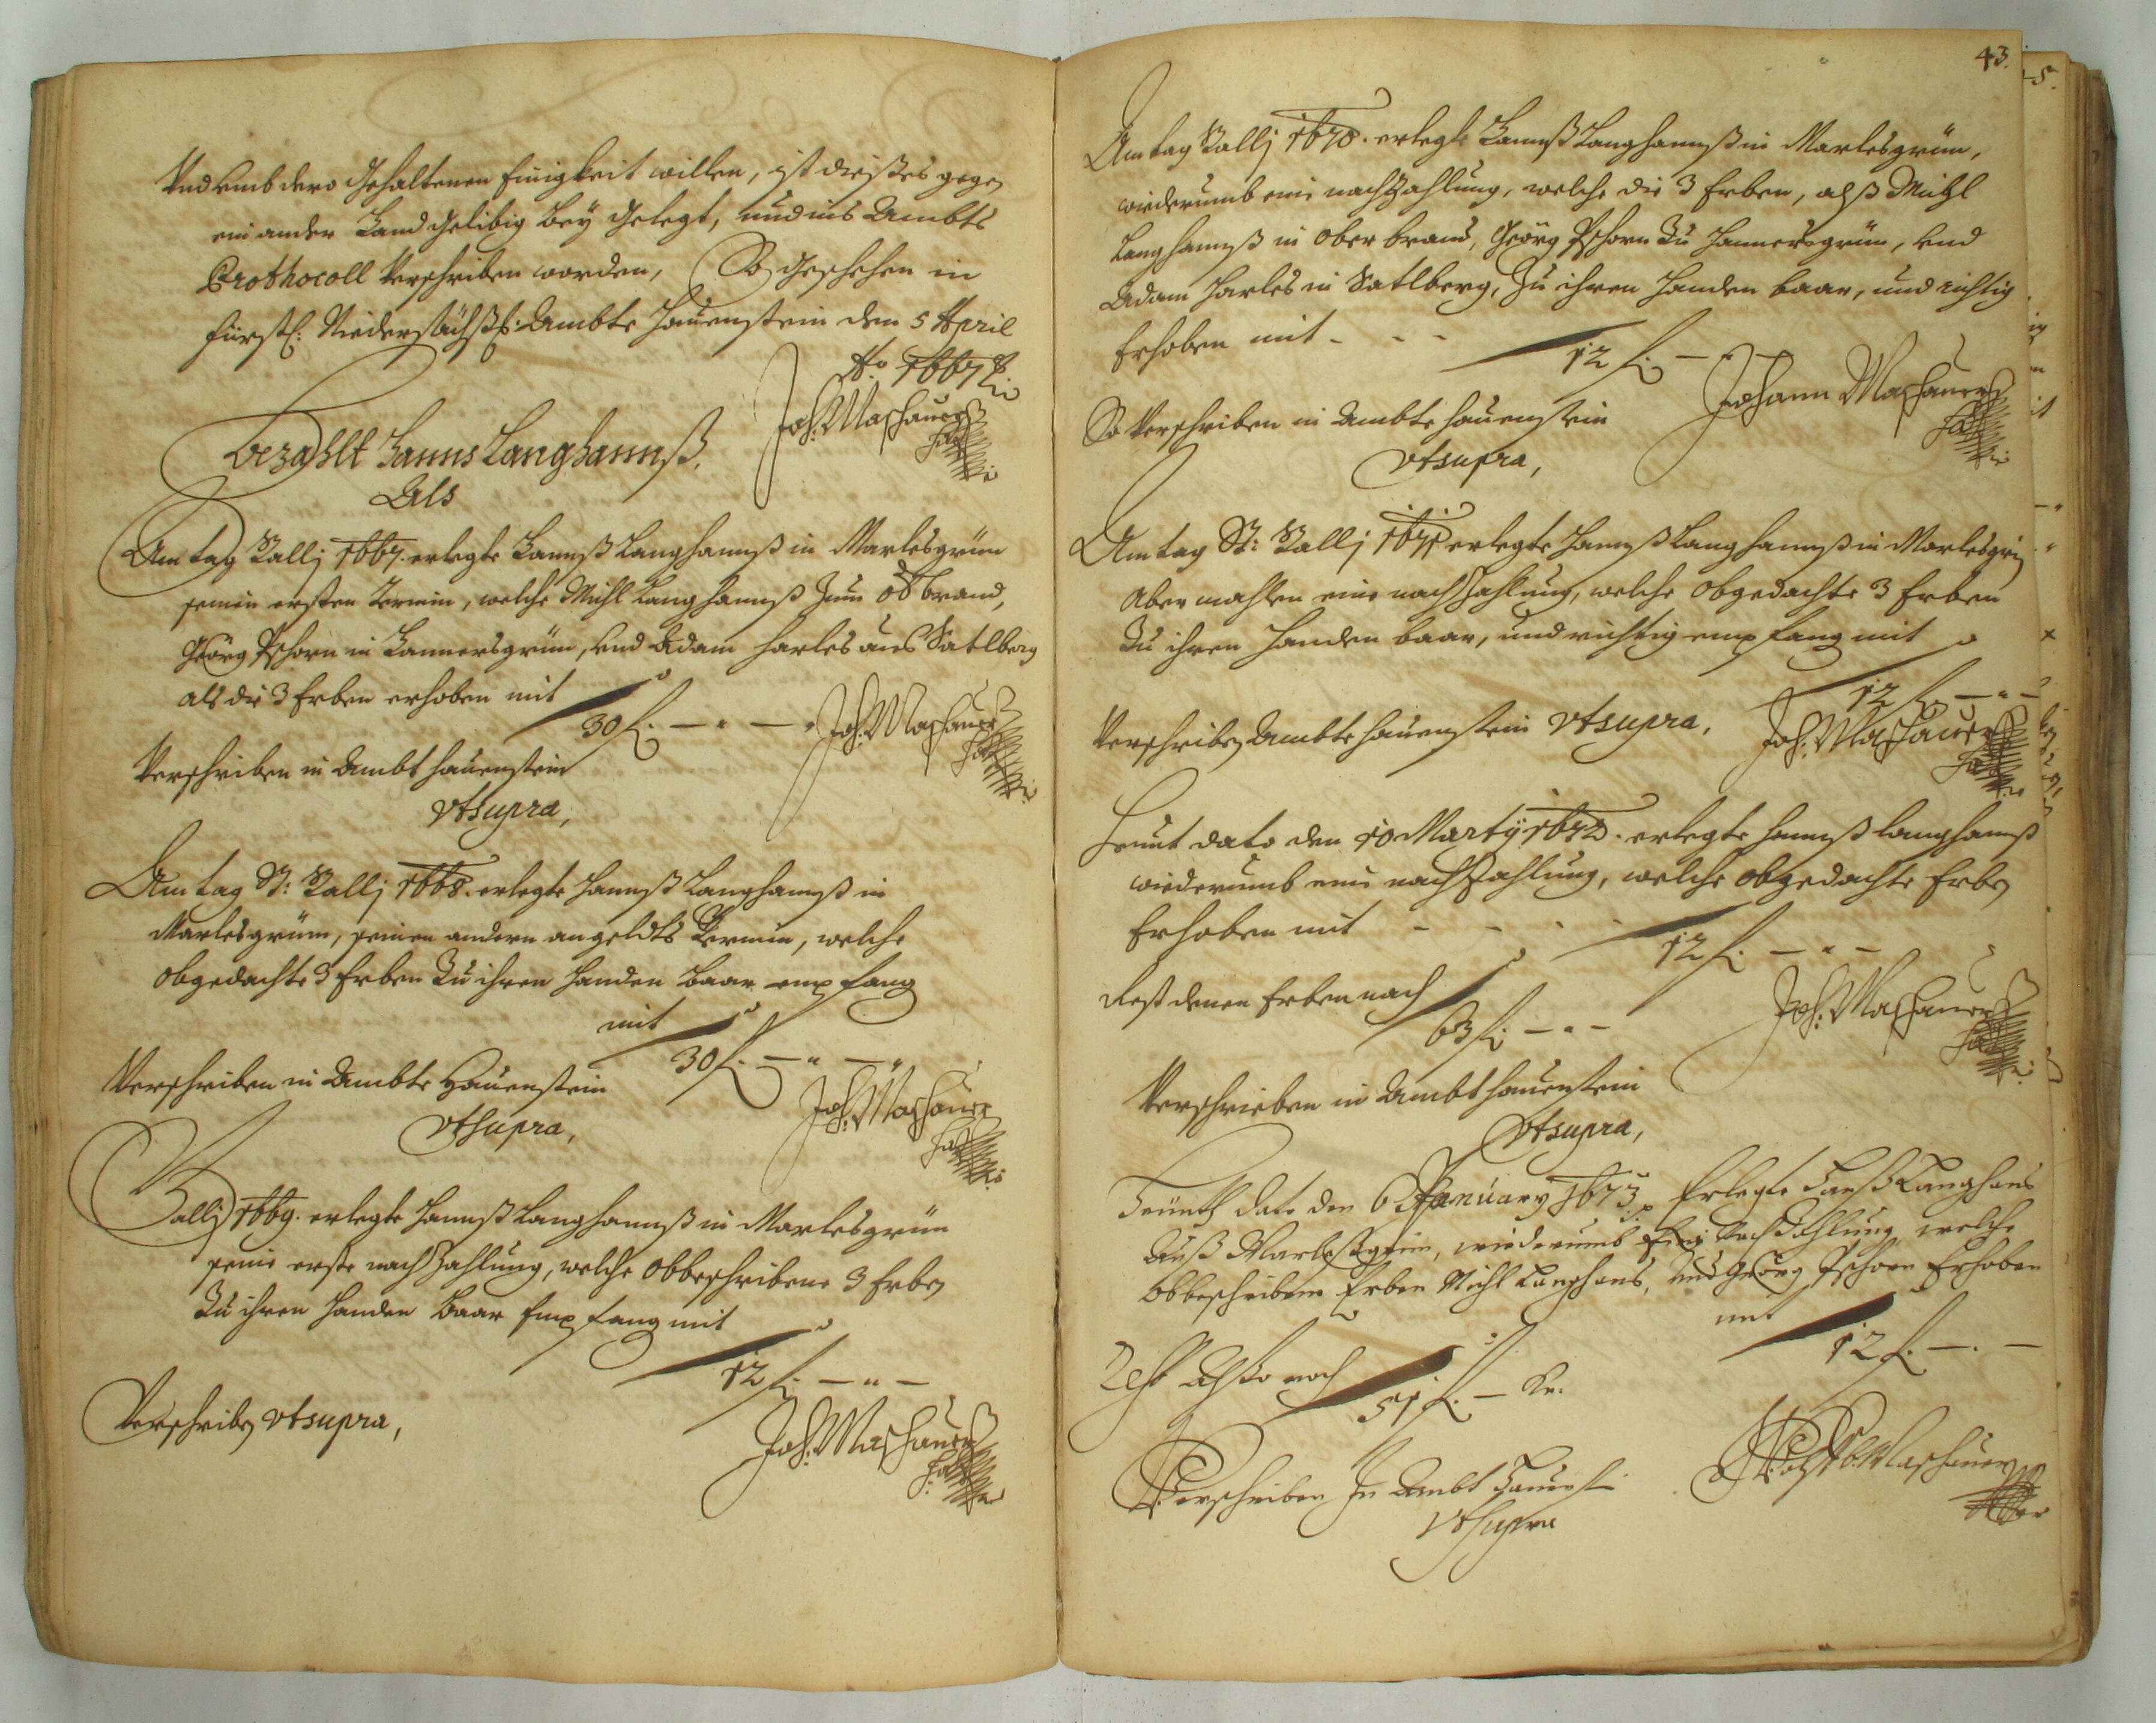 Und umb dero Gehaltenen Einigkeit willen, ist dießes gegen
ein ander Handgelibig bey gelegt, und ins Ambts
Prothocoll Verschriben worden, So geschehen in
Fürstl: Nidersächßl: Ambte Hauenstein den 5 April
Ao 1667
Joh: Maschauer
bezahlt Hanns Langhannß.
Als
Am tag Galli 1667. erlegte Hannß Langhannß in Marlesgrün
seinen ersten Termin, welche Michl Langhannß zum OBbrand,
Georg Pschorn in Hannersgrün, und Adam Harles aus Satlberg
als die 3 Erben erhoben mit
30 f. — " — "
Joh: Maschauer
Verschriben in Ambt Hauenstein
Vtsupra,
Am tag St: Galli 1668. erlegte Hannß Langhannß in
Marlesgrün, seinen andern angeldts Termin, welche
obgedachte 3 Erben zu ihren Handen baar empfang
mit
30 f. — " — "
Verschriben in Ambte Hauenstein
Vtsupra,
Joh: Maschauer
Galli 1669. erlegte Hannß Langhannß in Marlesgrün
seine erste nachzahlung, welche obbeschribene 3 Erben
zu ihren Handen baar Empfang mit
12 f. — " —
Verschriben Vtsupra,
Joh: Maschauer
43.
Am tag Galli 1670. erlegte Hannß Langhannß in Marlesgrün,
wiederumb eine nachzahlung, welche die 3 Erben, alß Michl
Langhannß in Ober brand, Georg Pschorn zu Hannersgrün, und
Adam Harles in Satlberg, zu ihren Handen baar, und richtig
Erhoben mit - - -
12 f. —
Johann Maschauer
So Verschriben in Ambte Hauenstein
Vtsupra,
Am tag St: Galli 1671 erlegte Hannß Langhannß in Marlesgrün
Abermahlen eine nachzahlung, welche obgedachte 3 Erben
zu ihren Handen baar, und richtig empfang mit
12 f. — " —
Verschriben Ambte Hauenstein Vtsupra,
Joh: Maschauer
Heunt dato den 10 Marty 1672. erlegte Hannß Langhannß
wiederumb eine nachzahlung, welche obgedachte Erben
Erhoben mit - - -
12 f. — " —
Rest denen Erben nach
63 f. — " —
Joh: Maschauer
Verschrieben in Ambt Hauenstein
Vtsupra,
Heünth Dato den 6 January 1673 Erlegte Hanß Langhans
Auß Marleßgrün, wiederumb Eine Nachzahlung welche
Obbeschribene Erben Michl Langhans, Und Georg Pschorn Erhoben
mit
12 f. — . —
Rest Alßo noch
51 f. — Kr.
Verschriben In Ambt Hauenst
Vtsupra
Maschauer